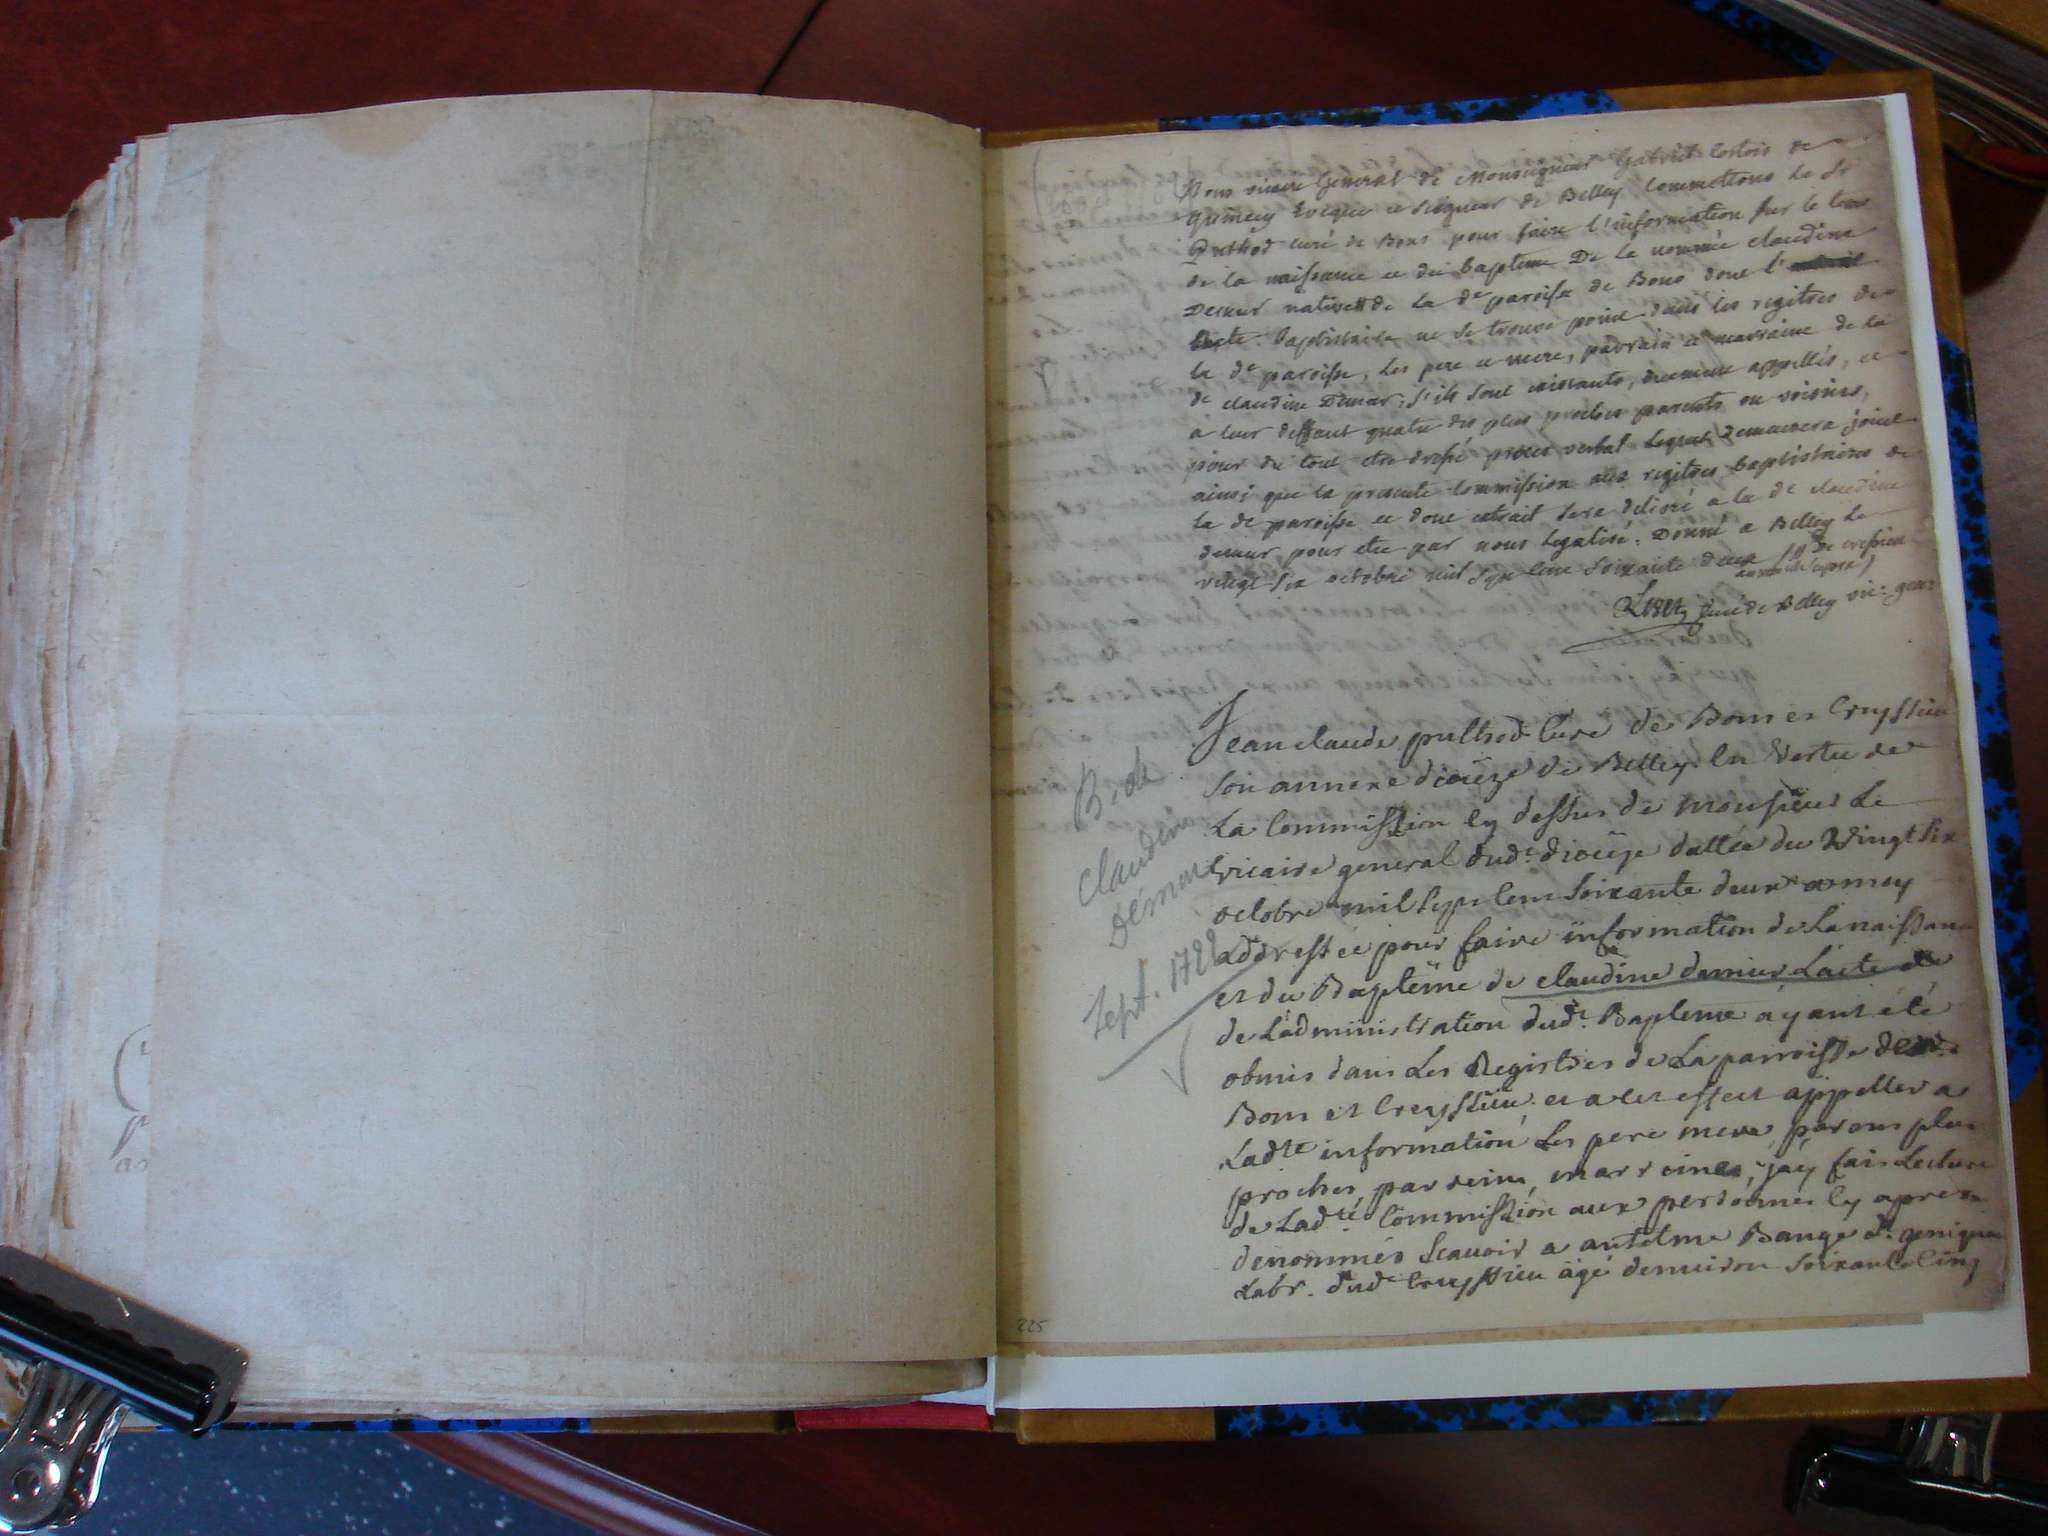 Nous vicaire General de Monseigneur Gabriel Cortois de
Quincey Eveque et seigneur de Belley Commettons le Sr
Puthod curé de Bons pour faire l'information sur le tems
de la naissance et du bapteme De la nommée claudine
Demeur native de la de paroisse de Bons dont l'
acte baptistaire ne se trouve point dans les regitres de
la de paroisse, les pere et mere, parrain et marraine de la
de claudine Demeur, s'ils sont existants, appellés, et
a leur deffaut quatre des plus proches parents ou voisins,
pour du tout etre dressé procès verbal lequel Demeurera joint
ainsi que la presente Commission aux regitres baptistaires de
la de paroisse et dont extrait sera delivré a la de claudine
demeur pour etre par nous legalisé. Donné a Belley le
vingt-six octobre mil sept cent soixante deux
curé de Belley vic. gen.
Jean claude puthod Curé de Bons et Cruyssieu
son annexe diocèze de Belley En Vertu de
La Commission Cy dessus de monsieur Le
Vicaire general dudt diocèze dattée du Vingt six
octobre mil sept cent soixante deux a moy
addressée pour faire information de La naissance
et du Baptême de claudine demeur L'acte
de L'administration dudt Baptême ayant été
obmis dans Les Registres de La parroisse
Bons et Creyssieu et a cet effect appeller a
Ladte information Les pere mere, parens plus
proches, parrein, marreine, j'ay fais Lecture
de Ladte Commission aux personnes Cy apres
denommés Scavoir a antelme Bange dt
Labr. dudt Cruyssieu âgé denviron soixante Cinq
B. de
Claudine
Demeur
Sept. 1722
225